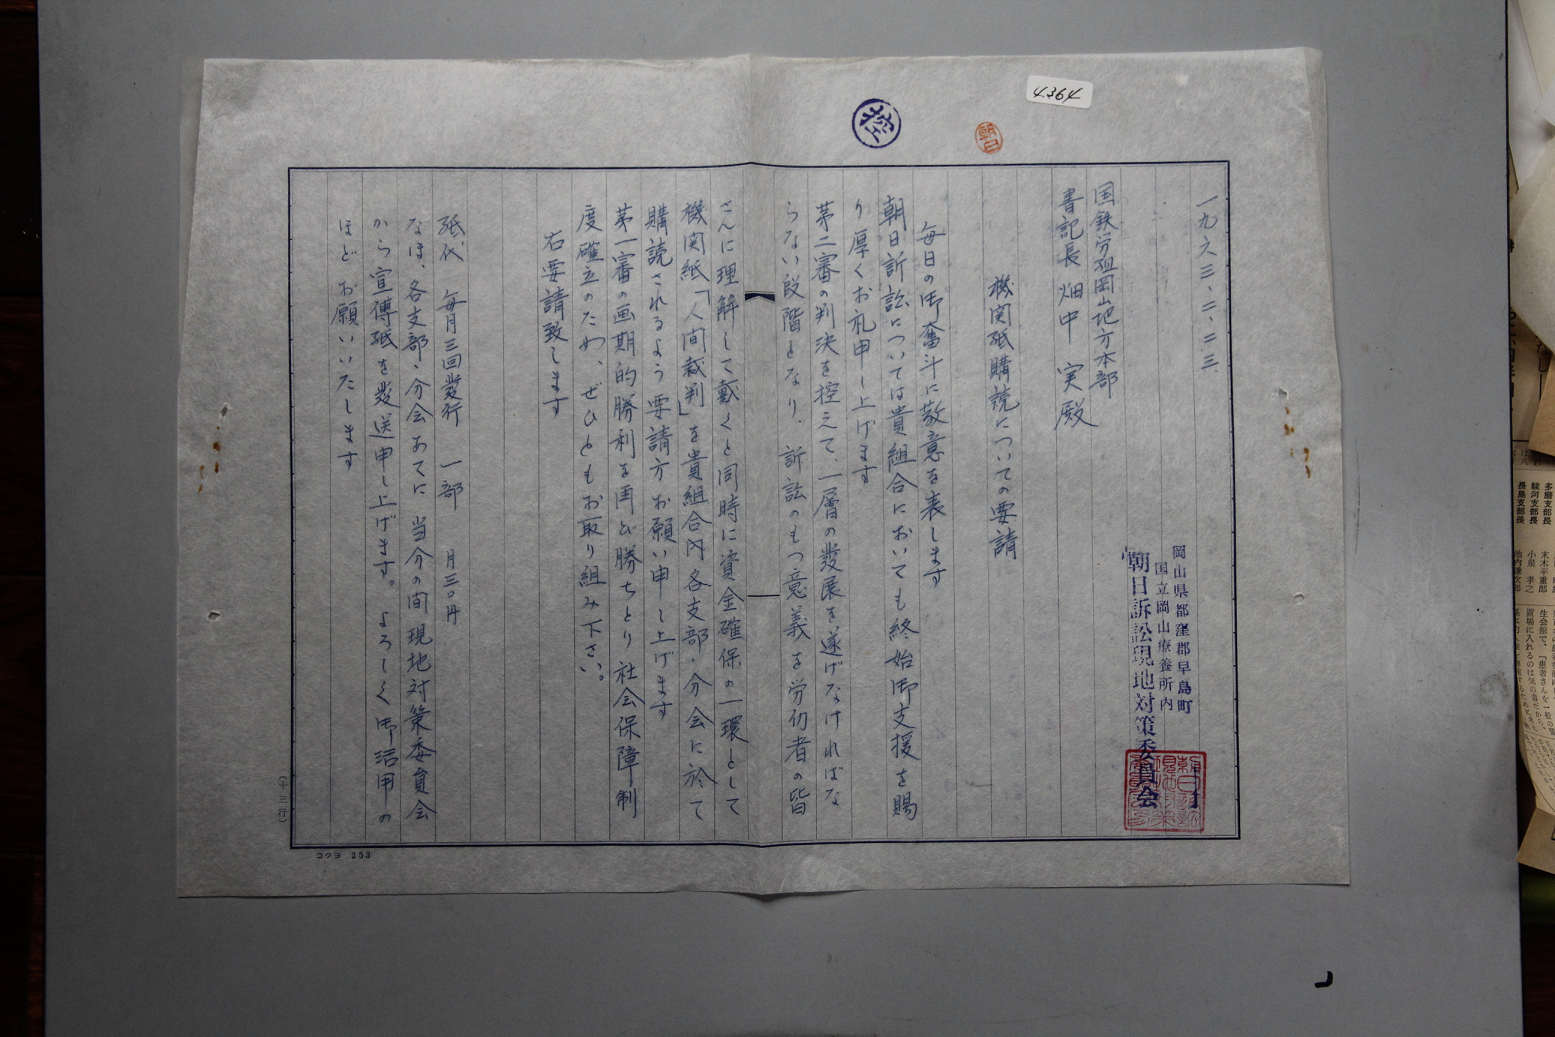 4364
控
朝日
一九六三、二、二三
国鉄労組岡山地方本部
書記長 畑中 実殿
岡山県都窪郡早島町
国立岡山療養所内
朝日訴訟現地対策委員会
機関紙購読についての要請
毎日の御奮斗に敬意を表します
朝日訴訟については貴組合においても終始御支援を賜
り厚くお礼申し上げます
第二審の判決を控えて、一層の発展を遂げなければな
らない段階となり、訴訟のもつ意義を労仂者の皆
さんに理解して戴くと同時に資金確保の一環として
機関紙「人間裁判」を貴組合内各支部・分会に於て
購読されるよう要請方お願い申し上げます
第一審の画期的勝利を再び勝ちとり社会保障制
度確立のため、ぜひともお取り組み下さい。
右要請致します
紙代 毎月三回発行 一部 月三〇円
なほ、各支部・分会あてに、当分の間現地対策委員会
から宣傳紙を発送申し上げます。よろしく御活用の
ほどお願いいたします
(十三行)
コクヨ 253
多磨支部長
駿河支部長
長島支部長